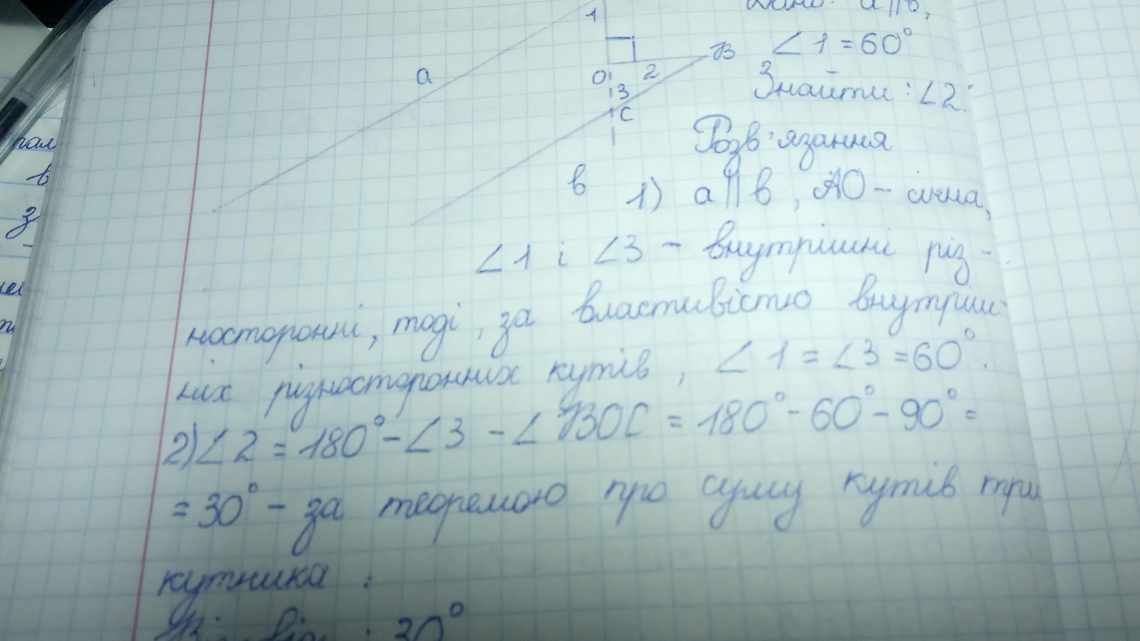 Дано: a||в,
1
∠1 = 60°
а
О 2 В
Знайти: ∠2.
3
С
Розв'язання
в
1) a||в, АО - січна,
∠1 і ∠3 - внутрішні різ-
носторонні, тоді, за властивістю внутріш-
ніх різносторонніх кутів, ∠1 = ∠3 = 60°.
2) ∠2 = 180° - ∠3 - ∠ВОС = 180° - 60° - 90° =
= 30° - за теоремою про суму кутів три
кутника.
30°